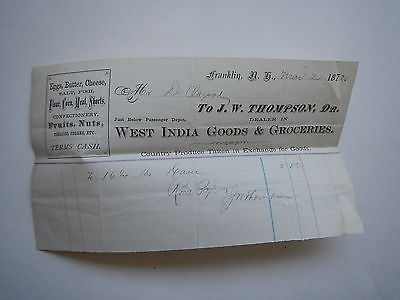 Eggs, Butter, Cheese,
SALT, FISH,
Flour, Corn, Meal, Shorts,
CONFECTIONERY,
Fruits, Nuts,
TOBACCO, CIGARS, ETC.
TERMS CASH.
Franklin, N. H., 187
To J. W. THOMPSON, Dr.
Just Below Passenger Depot.
DEALER IN
WEST INDIA GOODS & GROCERIES.
Country Produce Taken in Exchange for Goods.
To 16
Rec'd Pay
J W Thompson